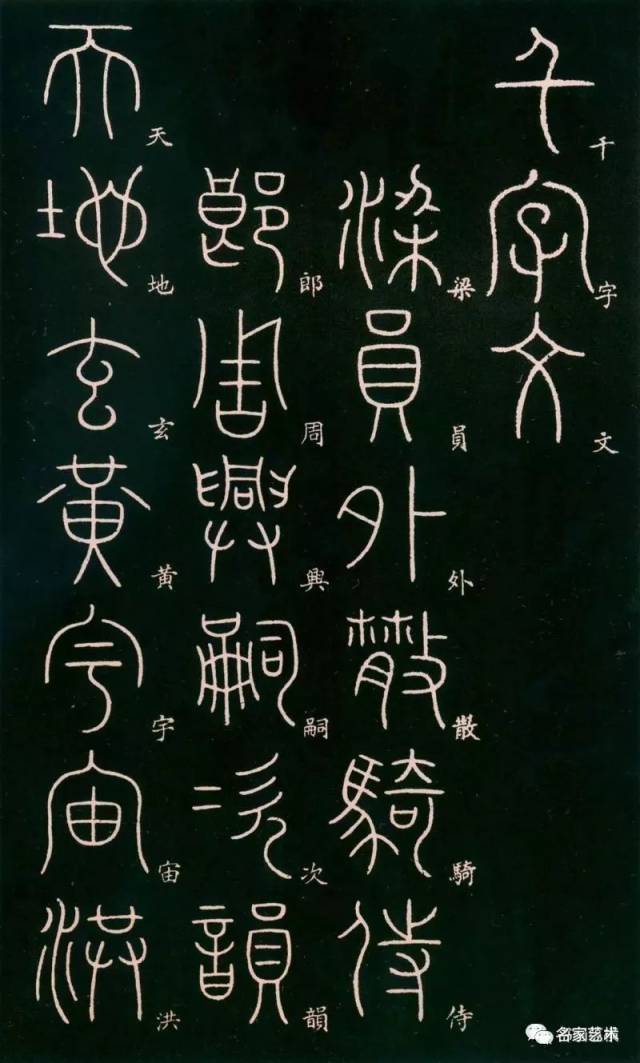 千字文
梁員外散騎侍
郎周興嗣次韻
天地玄黃宇宙洪
千字文
梁員外散騎侍
郎周興嗣次韻
天地玄黃宇宙洪
名家艺术